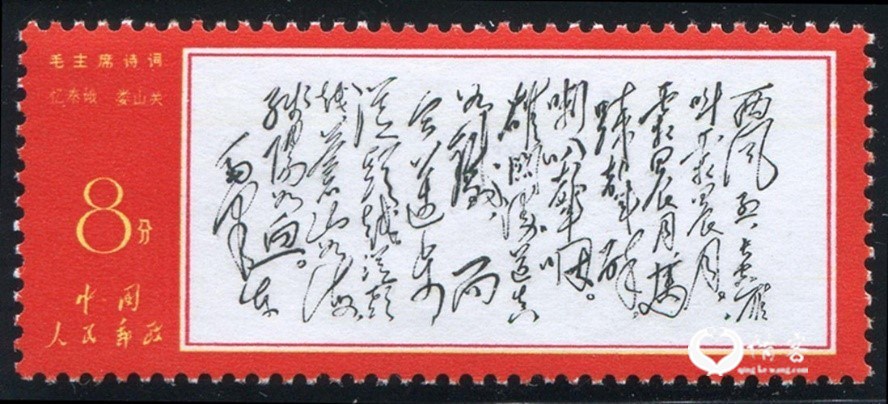 毛主席诗词
忆秦娥 娄山关
8分
中国
人民邮政
西风烈长空雁
叫霜晨月。
霜晨月马
蹄声碎
喇叭声咽。
雄关漫道真
如铁而
今迈步
从头越从头
越苍山如海
残阳如血。
毛泽东
情客
qingkewang.com